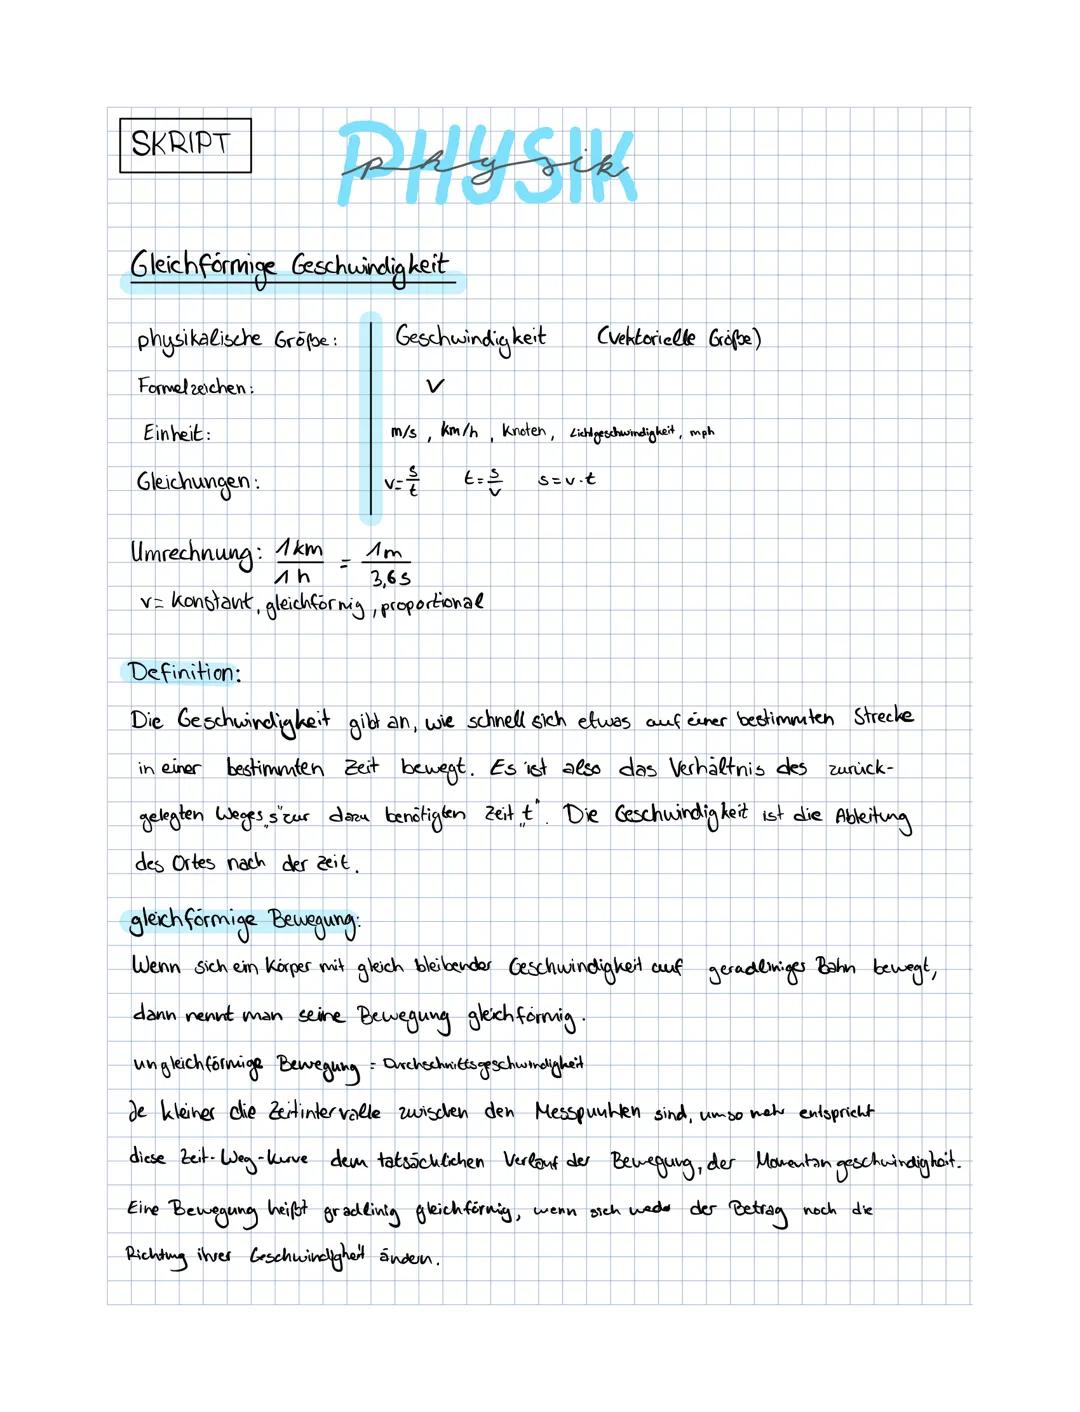 SKRIPT
PHYSIK
physik
Gleichförmige Geschwindigkeit
physikalische Größe: Geschwindigkeit (vektorielle Größe)
Formelzeichen: v
Einheit: m/s, km/h, Knoten, Lichtgeschwindigkeit, mph
Gleichungen: v=s/t t=s/v s=v·t
Umrechnung: 1km/1h = 1m/3,6s
v= konstant, gleichförmig, proportional
Definition:
Die Geschwindigkeit gibt an, wie schnell sich etwas auf einer bestimmten Strecke
in einer bestimmten Zeit bewegt. Es ist also das Verhältnis des zurück-
gelegten Weges „s" zur dazu benötigten Zeit „t". Die Geschwindigkeit ist die Ableitung
des Ortes nach der Zeit.
gleichförmige Bewegung:
Wenn sich ein Körper mit gleich bleibender Geschwindigkeit auf geradliniger Bahn bewegt,
dann nennt man seine Bewegung gleichförmig.
ungleichförmige Bewegung = Durchschnittsgeschwindigkeit
Je kleiner die Zeitintervalle zwischen den Messpunkten sind, umso mehr entspricht
diese Zeit-Weg-Kurve dem tatsächlichen Verlauf der Bewegung, der Momentangeschwindigkeit.
Eine Bewegung heißt gradlinig gleichförmig, wenn sich weder der Betrag noch die
Richtung ihrer Geschwindigkeit ändern.